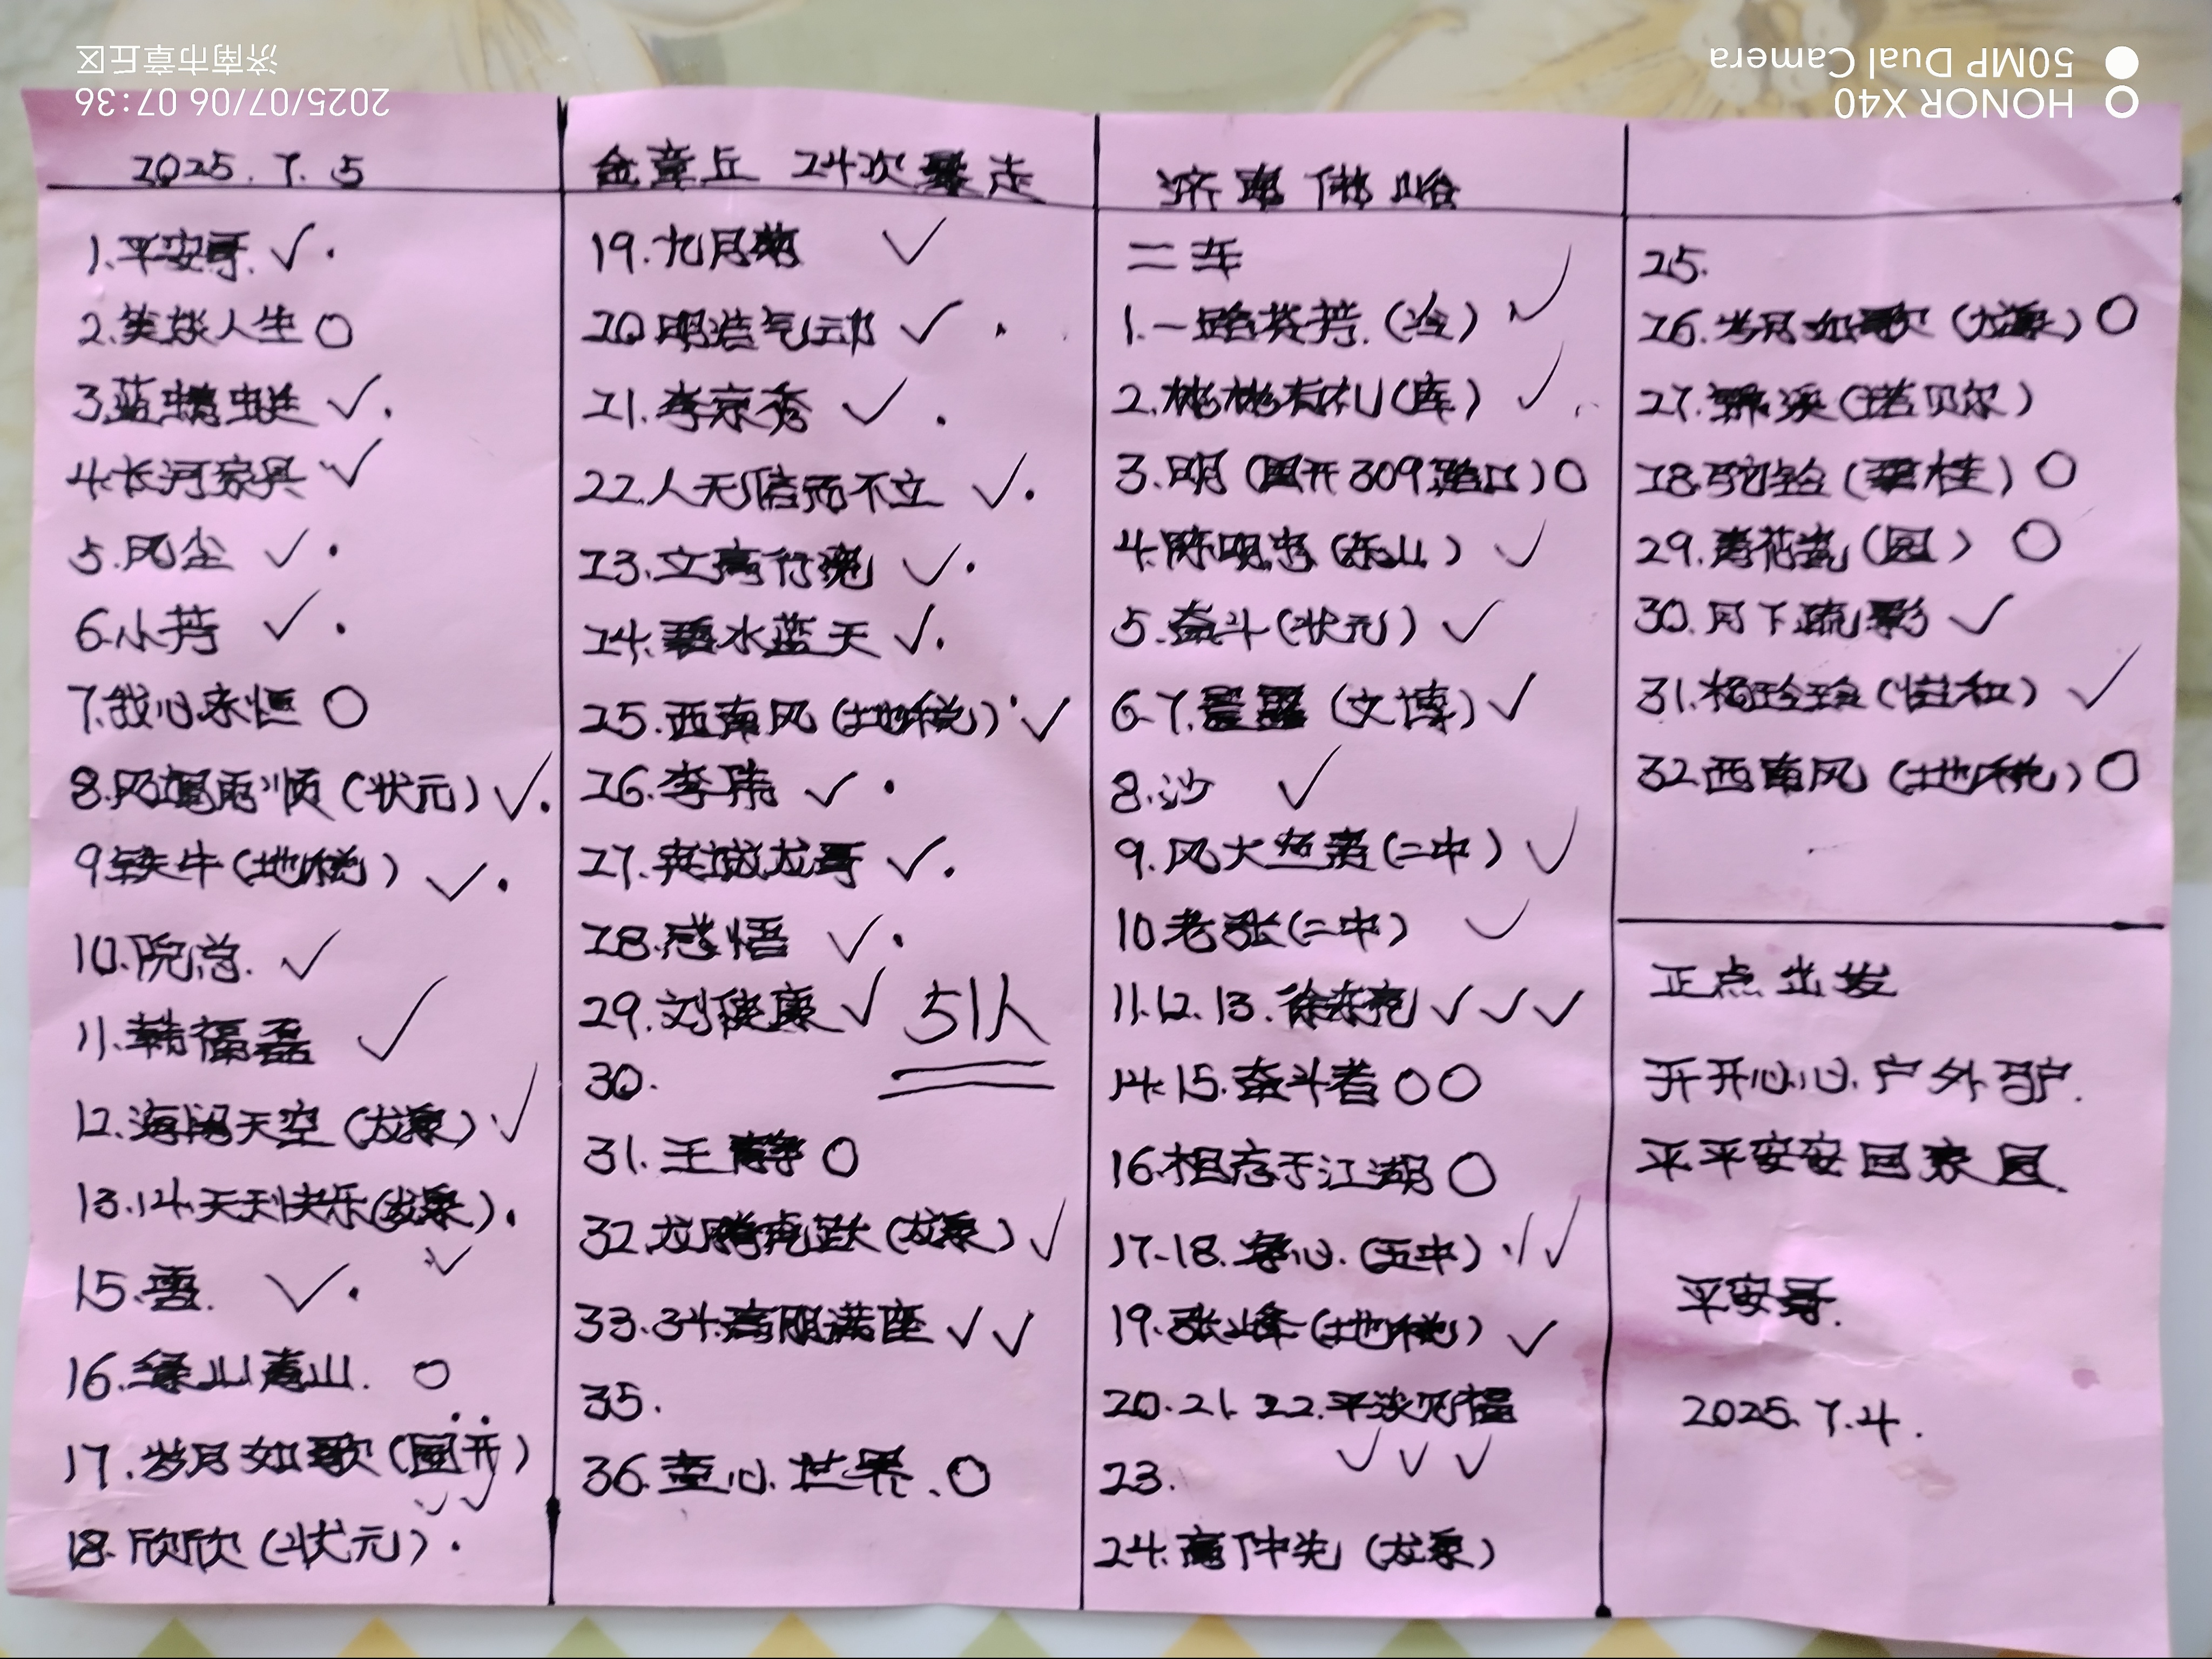 2025.7.5
1.平安哥.✓.
2.笑谈人生○
3.蓝蜻蜓✓.
4.长河家具✓
5.风尘✓.
6.小芳✓.
7.我心永恒○
8.风调雨顺(状元)✓.
9.铁牛(地税)✓.
10.院总.✓
11.韩福磊✓
12.海阔天空(龙泉)✓
13.14.天天快乐(龙泉).
✓
15.雪.✓.
16.绿山青山.○
17.岁月如歌(国开)
✓✓
18.欣欣(状元).
金章丘 24次暴走
19.九月菊✓
20.明浩气动✓.
21.李京秀✓.
22.人无信而不立✓.
23.文亮行ⵔ
24.碧水蓝天✓.
25.西南风(地税)✓
26.李伟✓.
27.英城龙哥✓.
28.感悟✓.
29.刘健康✓ 51人
30.
31.王静○
32.龙腾虎跃(龙泉)✓
33.34.高朋满座✓✓
35.
36.童心世界.○
济南佛峪
二车
1.一路芬芳.(冶)✓
2.桃桃有礼(库)✓
3.明(国开309路口)○
4.陈明忠(东山)✓
5.奋斗(状元)✓
6.7.晨露(文博)✓
8.沙✓
9.风大鱼肃(二中)✓
10.老张(二中)✓
11.12.13.徐东亮✓✓✓
14.15.奋斗者○○
16.相忘于江湖○
17.18.静心.(五中)✓✓
19.张峰(地税)✓
20.21.22.平淡见福
✓✓✓
23.
24.高仲先(龙泉)
25.
26.岁月如歌(龙泉)○
27.(诺贝尔)
28.驼铃(碧桂)○
29.青花瓷(园)○
30.月下疏影✓
31.杨玲玲(恒和)✓
32.西南风(地税)○
正点出发
开开心心户外驴.
平平安安回家园.
平安哥.
2025.7.4.
2025/07/06 07:36
济南市章丘区
HONOR X40
50MP Dual Camera